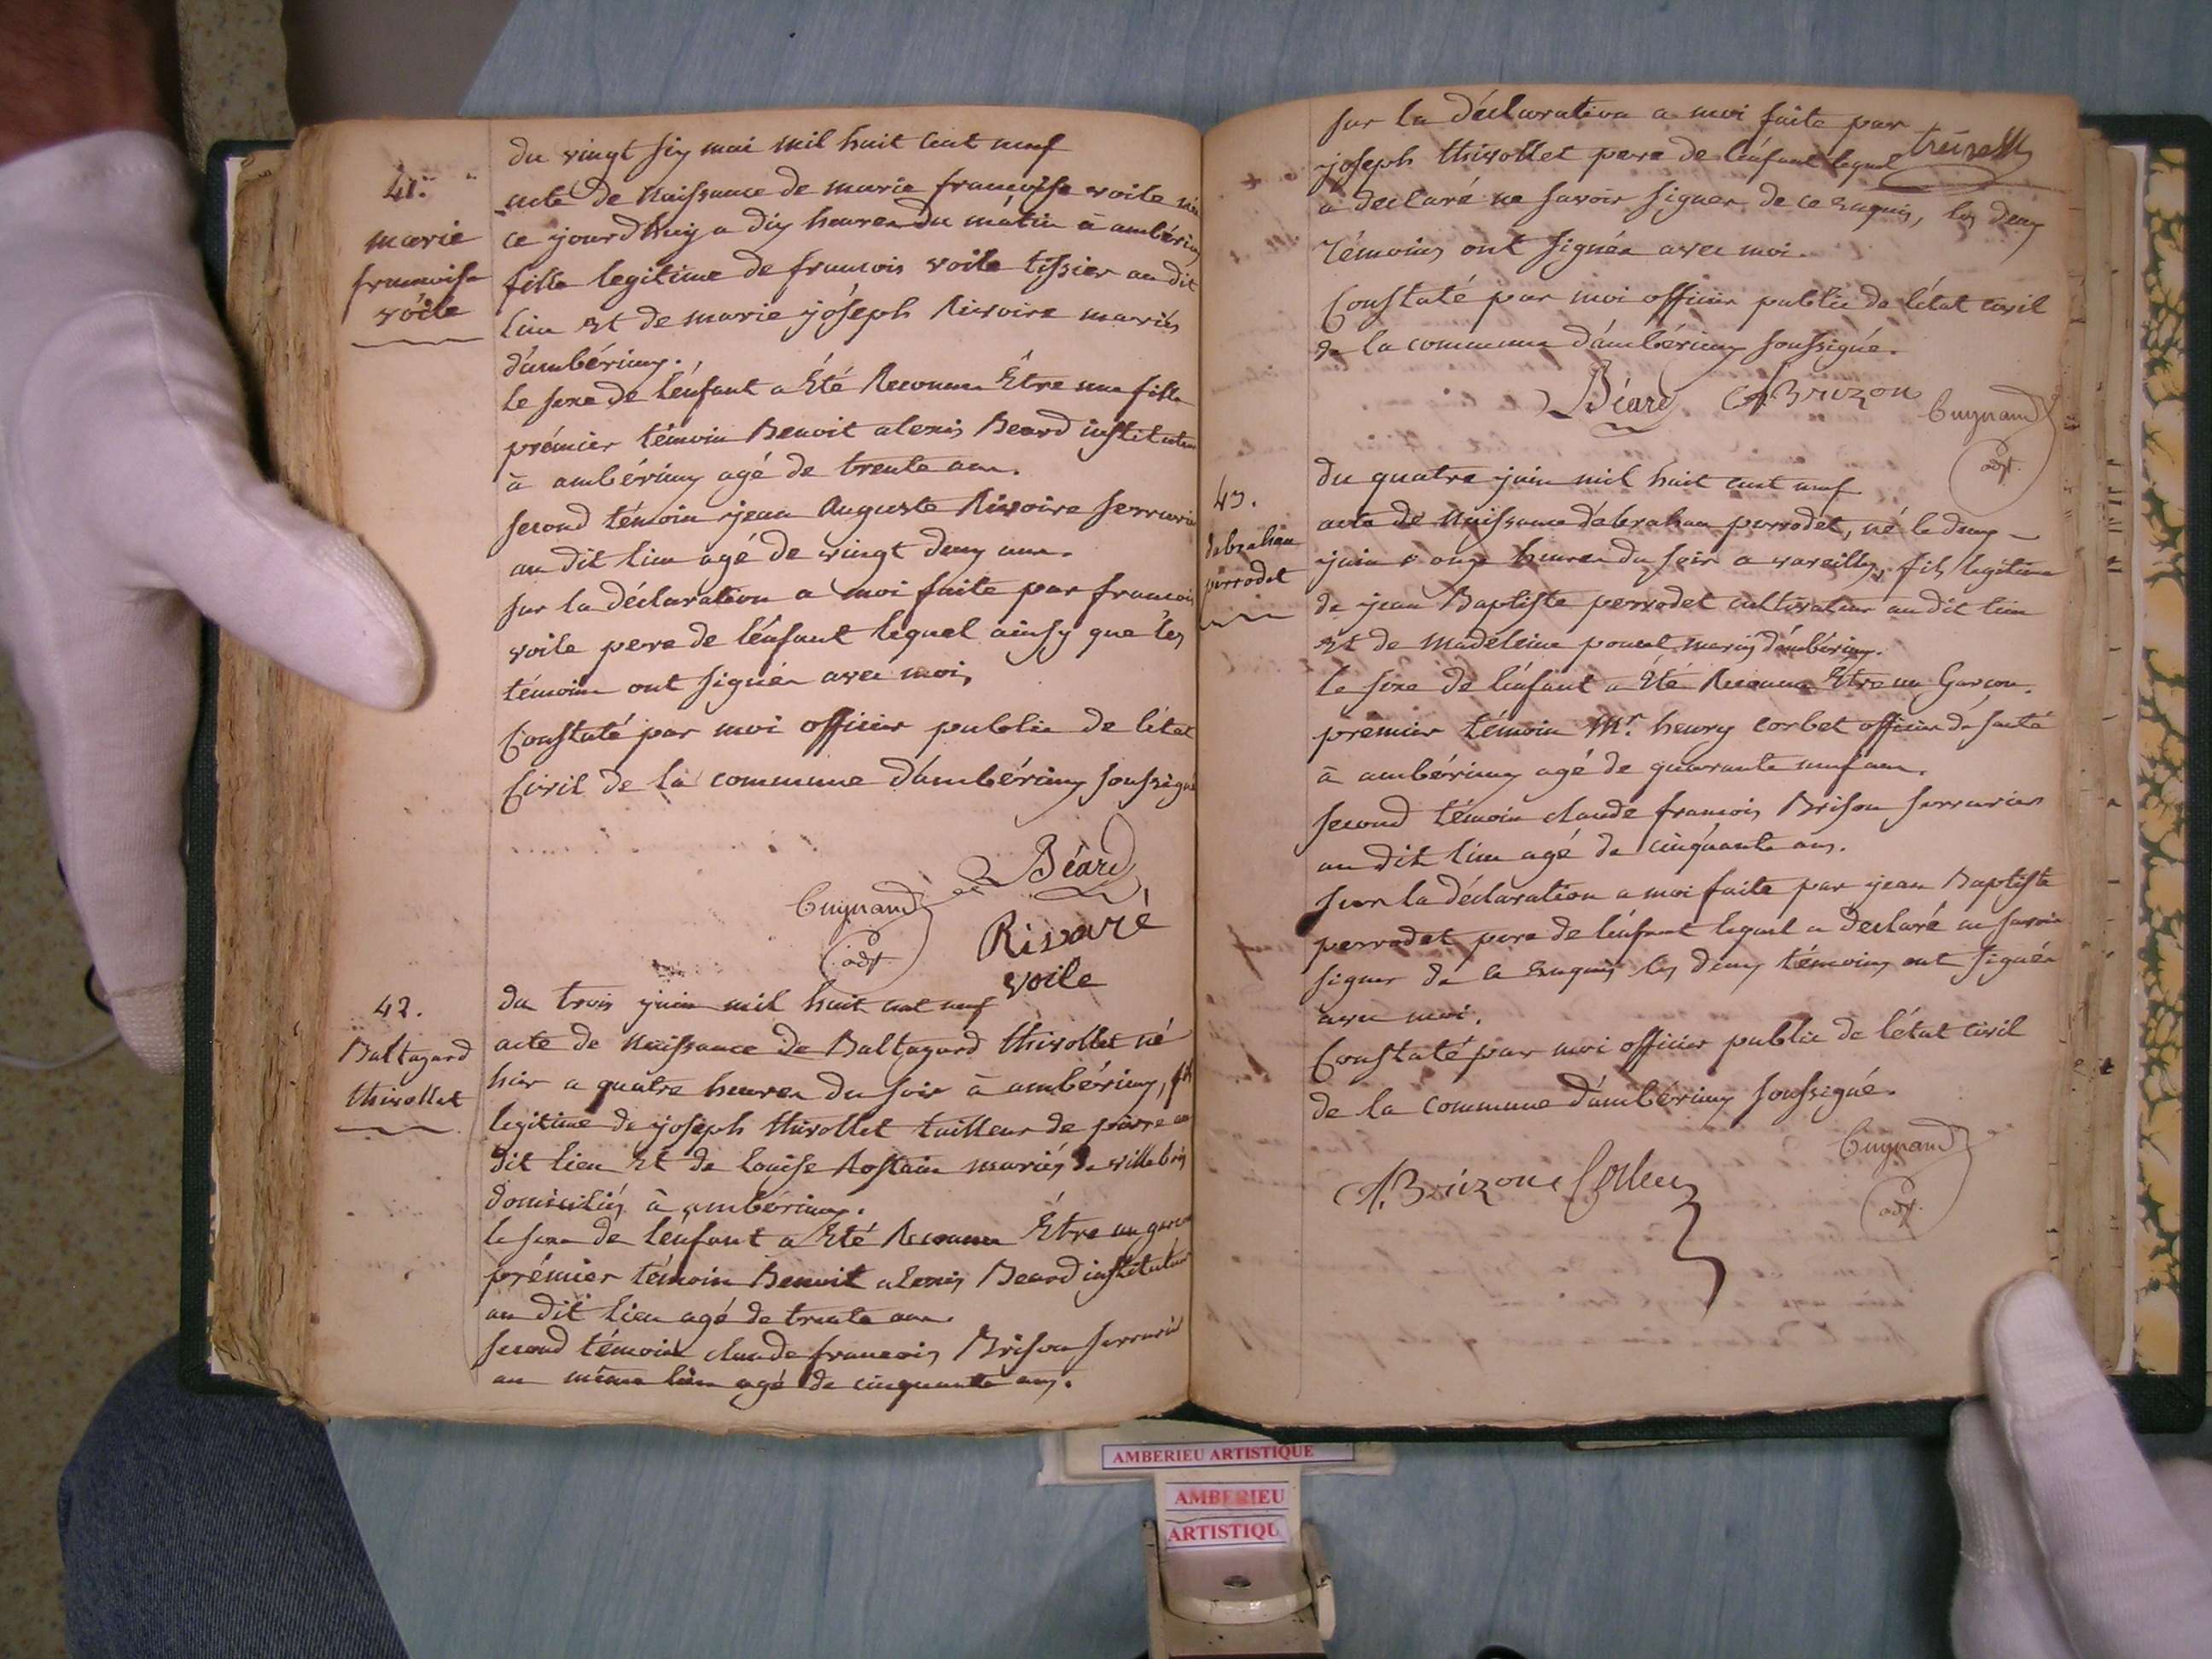 41.
marie
francoise
voile
du vingt six mai mil huit cent neuf
acte de naissance de marie francoise voile née
ce jourdhuy a dix heures du matin à ambérieux
fille legitime de francois voile tissier au dit
lieu et de marie joseph Rivoire mariés
d'ambérieux.
le sexe de l'énfant a Eté Reconnu Être une fille
prémier témoin Benoit alexis Beard instituteur
à ambérieux agé de trente ans.
second témoin jean Auguste Rivoire serrurier
au dit lieu agé de vingt deux ans.
sur la déclaration a moi faite par francois
voile pere de l'énfant lequel ainsy que les
témoins ont signés avec moi,
Constaté par moi officier public de l'état
Civil de la commune d'ambérieux soussigné
Béard
Cugnand
adjt.
Rivoire
voile
42.
Baltazard
thivollet
du trois juin mil huit cent neuf
acte de naissance de Baltazard thivollet né
hier a quatre heures du soir à ambérieux, fils
legitime de joseph thivollet tailleur de pierre au
dit lieu et de louise Rostain mariés de villebois
domiciliés à ambérieux.
le sexe de l'énfant a Eté Reconnu Être un garcon
prémier témoin Benoit alexis Beard instituteur
au dit lieu agé de trente ans.
second témoin claude francois Brison serrurier
au même lieu agé de cinquante ans.
sur la déclaration a moi faite par
joseph thivollet pere de l'énfant lequel
a declaré ne savoir signer de ce Enquis, les deux
témoins ont signés avec moi.
Constaté par moi officier public de l'état civil
de la commune d'ambérieux soussigné.
Béard C.f. Brizon Cugnand
adjt.
43.
d'abraham
perrodet
du quatre juin mil huit cent neuf
acte de naissance d'abraham perrodet, né le deux
juin a onze heures du soir a vareilles, fils legitime
de jean Baptiste perrodet cultivateur au dit lieu
et de madeleine poncet mariés d'ambérieux.
le sexe de l'énfant a Eté Reconnu Etre un Garçon.
premier témoin Mr. henry corbet officier de santé
à ambérieux agé de quarante neuf ans.
second témoin claude francois Brison serrurier
au dit lieu agé de cinquante ans.
sur la déclaration a moi faite par jean Baptiste
perrodet pere de l'énfant lequel a declaré ne savoir
signer de ce Enquis les deux témoins ont signés
avec moi.
Constaté par moi officier public de l'état civil
de la commune d'ambérieux soussigné.
Cugnand
adjt.
C.f. Brizon
AMBERIEU ARTISTIQUE
AMBERIEU
ARTISTIQU